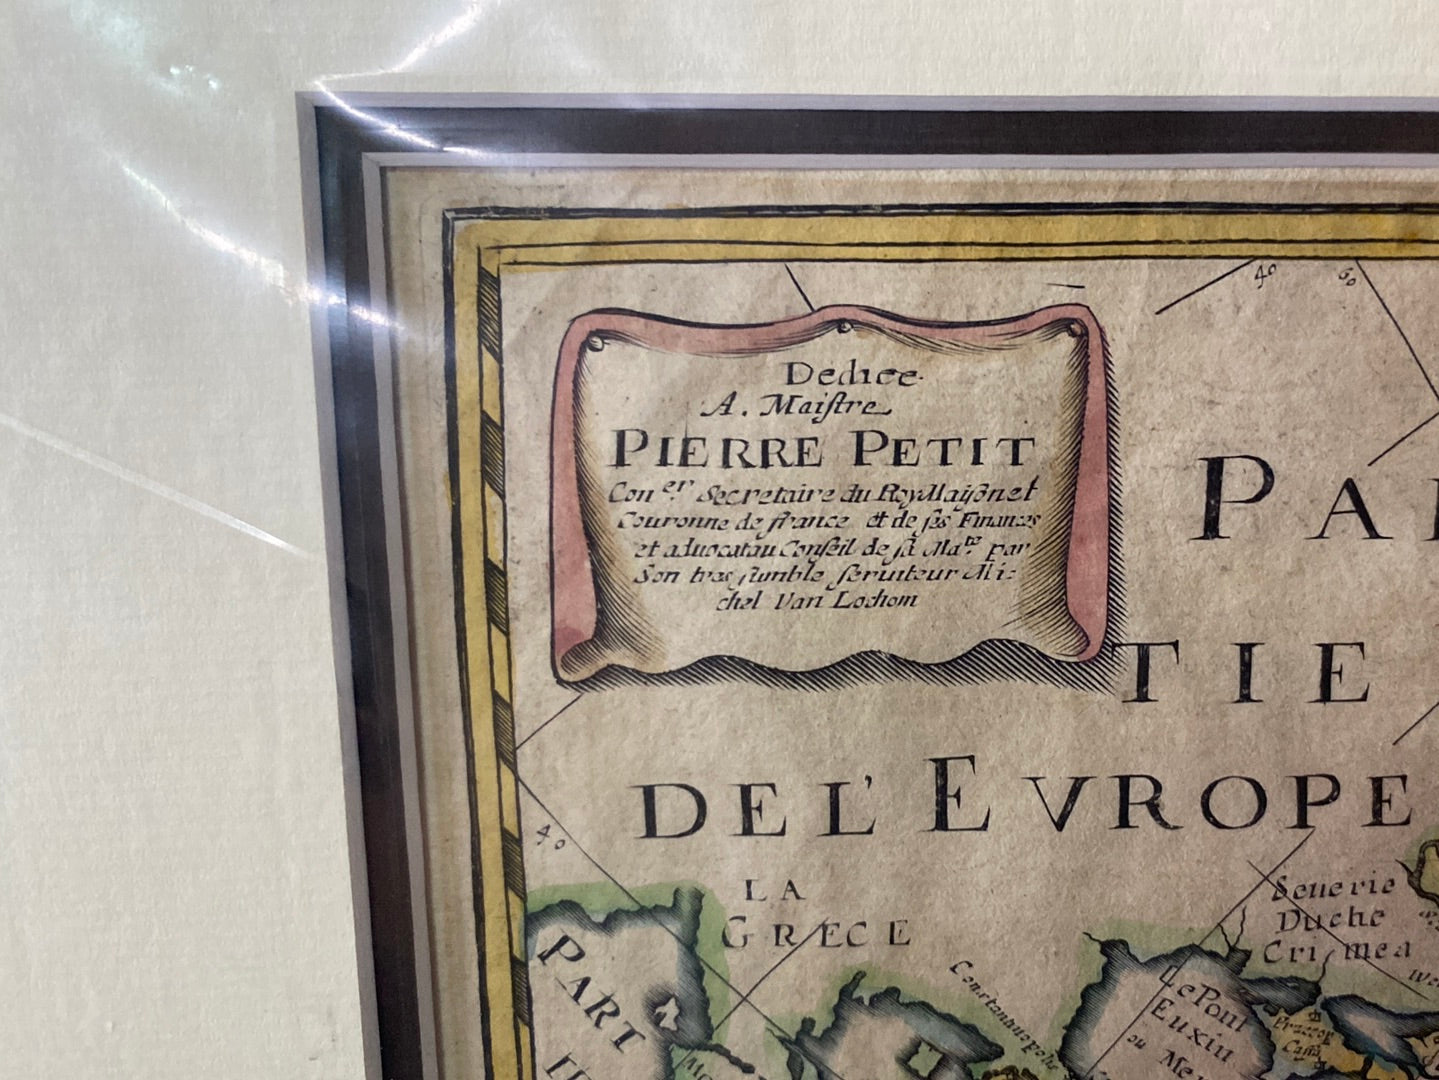 Dediee
A. Maiſtre
PIERRE PETIT
Con.er Secretaire du Roy Maiſon et
Couronne de france et de ſes Finances
et aduocat au Conſeil de ſa Ma.te par
Son tres humble ſeruiteur Mi-
chel Van Lochom
40
60
PAR
TIE
DE L' EVROPE
40
LA
GRECE
PART
Seuerie
Duche
Crimea
Constantinople
Le Pont
Euxin
ou Me
Precop